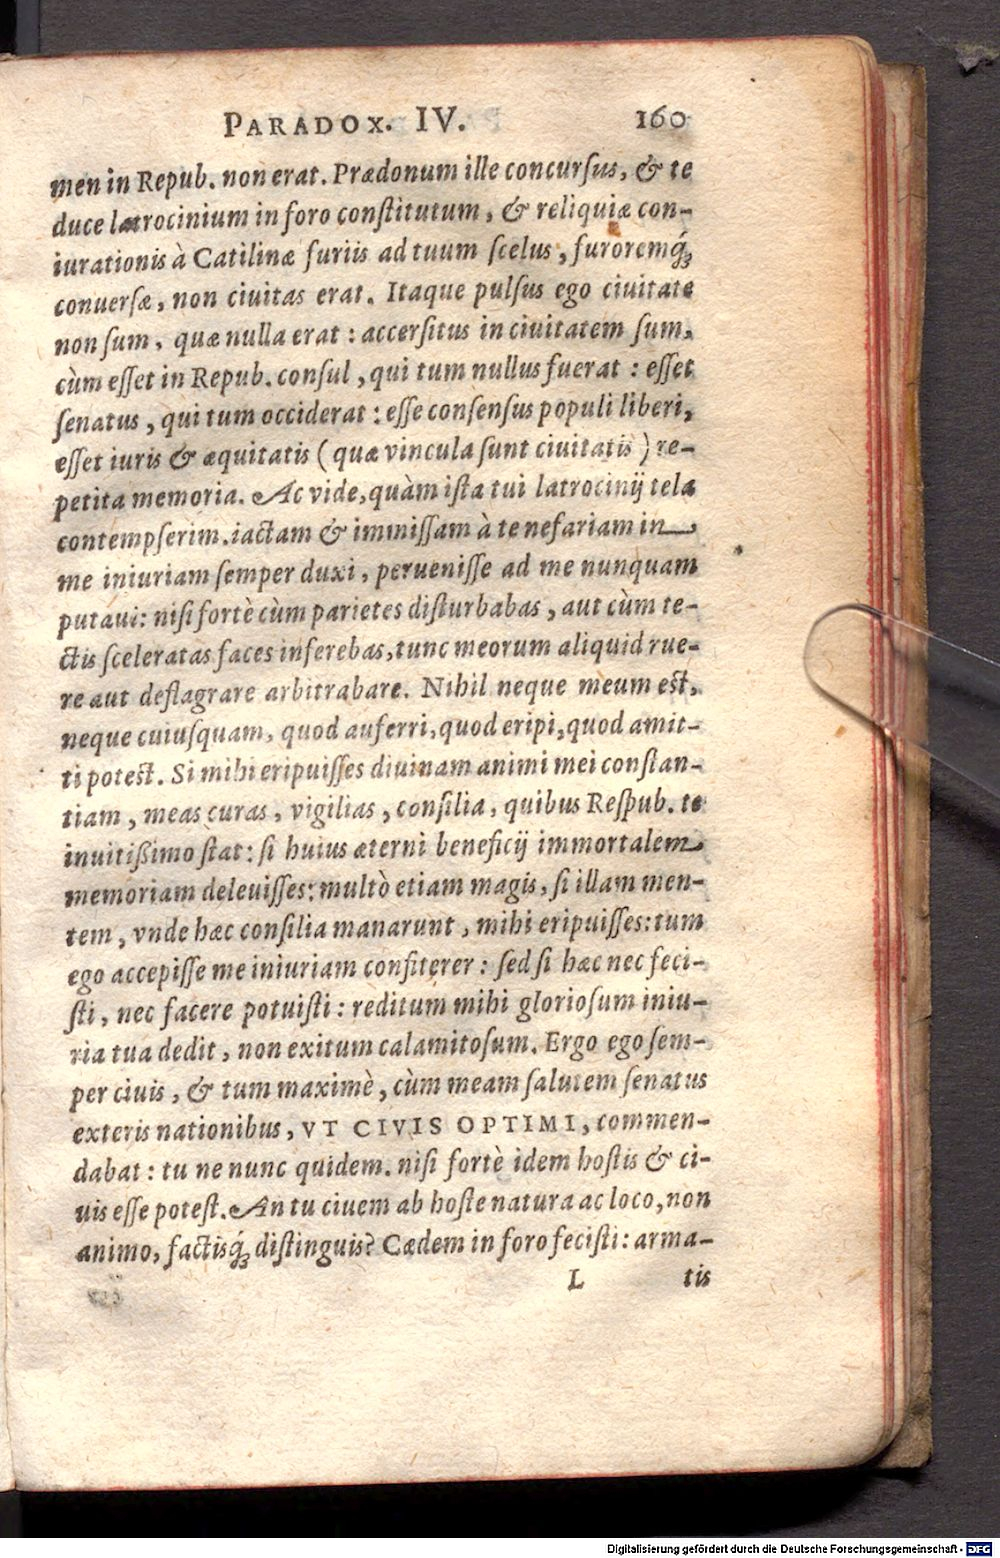 PARADOX. IV. 160
men in Repub. non erat. Prædonum ille concurſus, & te
duce latrocinium in foro conſtitutum, & reliquiæ con-
iurationis à Catilinæ furiis ad tuum ſcelus, furoremq́ꝫ
conuerſæ, non ciuitas erat. Itaque pulſus ego ciuitate
non ſum, quæ nulla erat: accerſitus in ciuitatem ſum,
cùm eſſet in Repub. conſul, qui tum nullus fuerat: eſſet
ſenatus, qui tum occiderat: eſſe conſenſus populi liberi,
eſſet iuris & æquitatis (quæ vincula ſunt ciuitatis) re-
petita memoria. Ac vide, quàm iſta tui latrocinij tela
contempſerim. iactam & immiſſam à te nefariam in
me iniuriam ſemper duxi, perueniſſe ad me nunquam
putaui: niſi fortè cùm parietes diſturbabas, aut cùm te-
ctis ſceleratas faces inferebas, tunc meorum aliquid rue-
re aut deflagrare arbitrabare. Nihil neque meum eſt,
neque cuiuſquam, quod auferri, quod eripi, quod amit-
ti poteſt. Si mihi eripuiſſes diuinam animi mei conſtan-
tiam, meas curas, vigilias, conſilia, quibus Reſpub. te
inuitißimo ſtat: ſi huius æterni beneficij immortalem
memoriam deleuiſſes: multò etiam magis, ſi illam men-
tem, vnde hæc conſilia manarunt, mihi eripuiſſes: tum
ego accepiſſe me iniuriam confiterer: ſed ſi hæc nec feci-
ſti, nec facere potuiſti: reditum mihi glorioſum iniu-
ria tua dedit, non exitum calamitoſum. Ergo ego ſem-
per ciuis, & tum maximè, cùm meam ſalutem ſenatus
exteris nationibus, VT CIVIS OPTIMI, commen-
dabat: tu ne nunc quidem. niſi fortè idem hoſtis & ci-
uis eſſe poteſt. An tu ciuem ab hoſte natura ac loco, non
animo, factisq́ꝫ diſtinguis? Cædem in foro feciſti: arma-
L tis
Digitalisierung gefördert durch die Deutsche Forschungsgemeinschaft - DFG